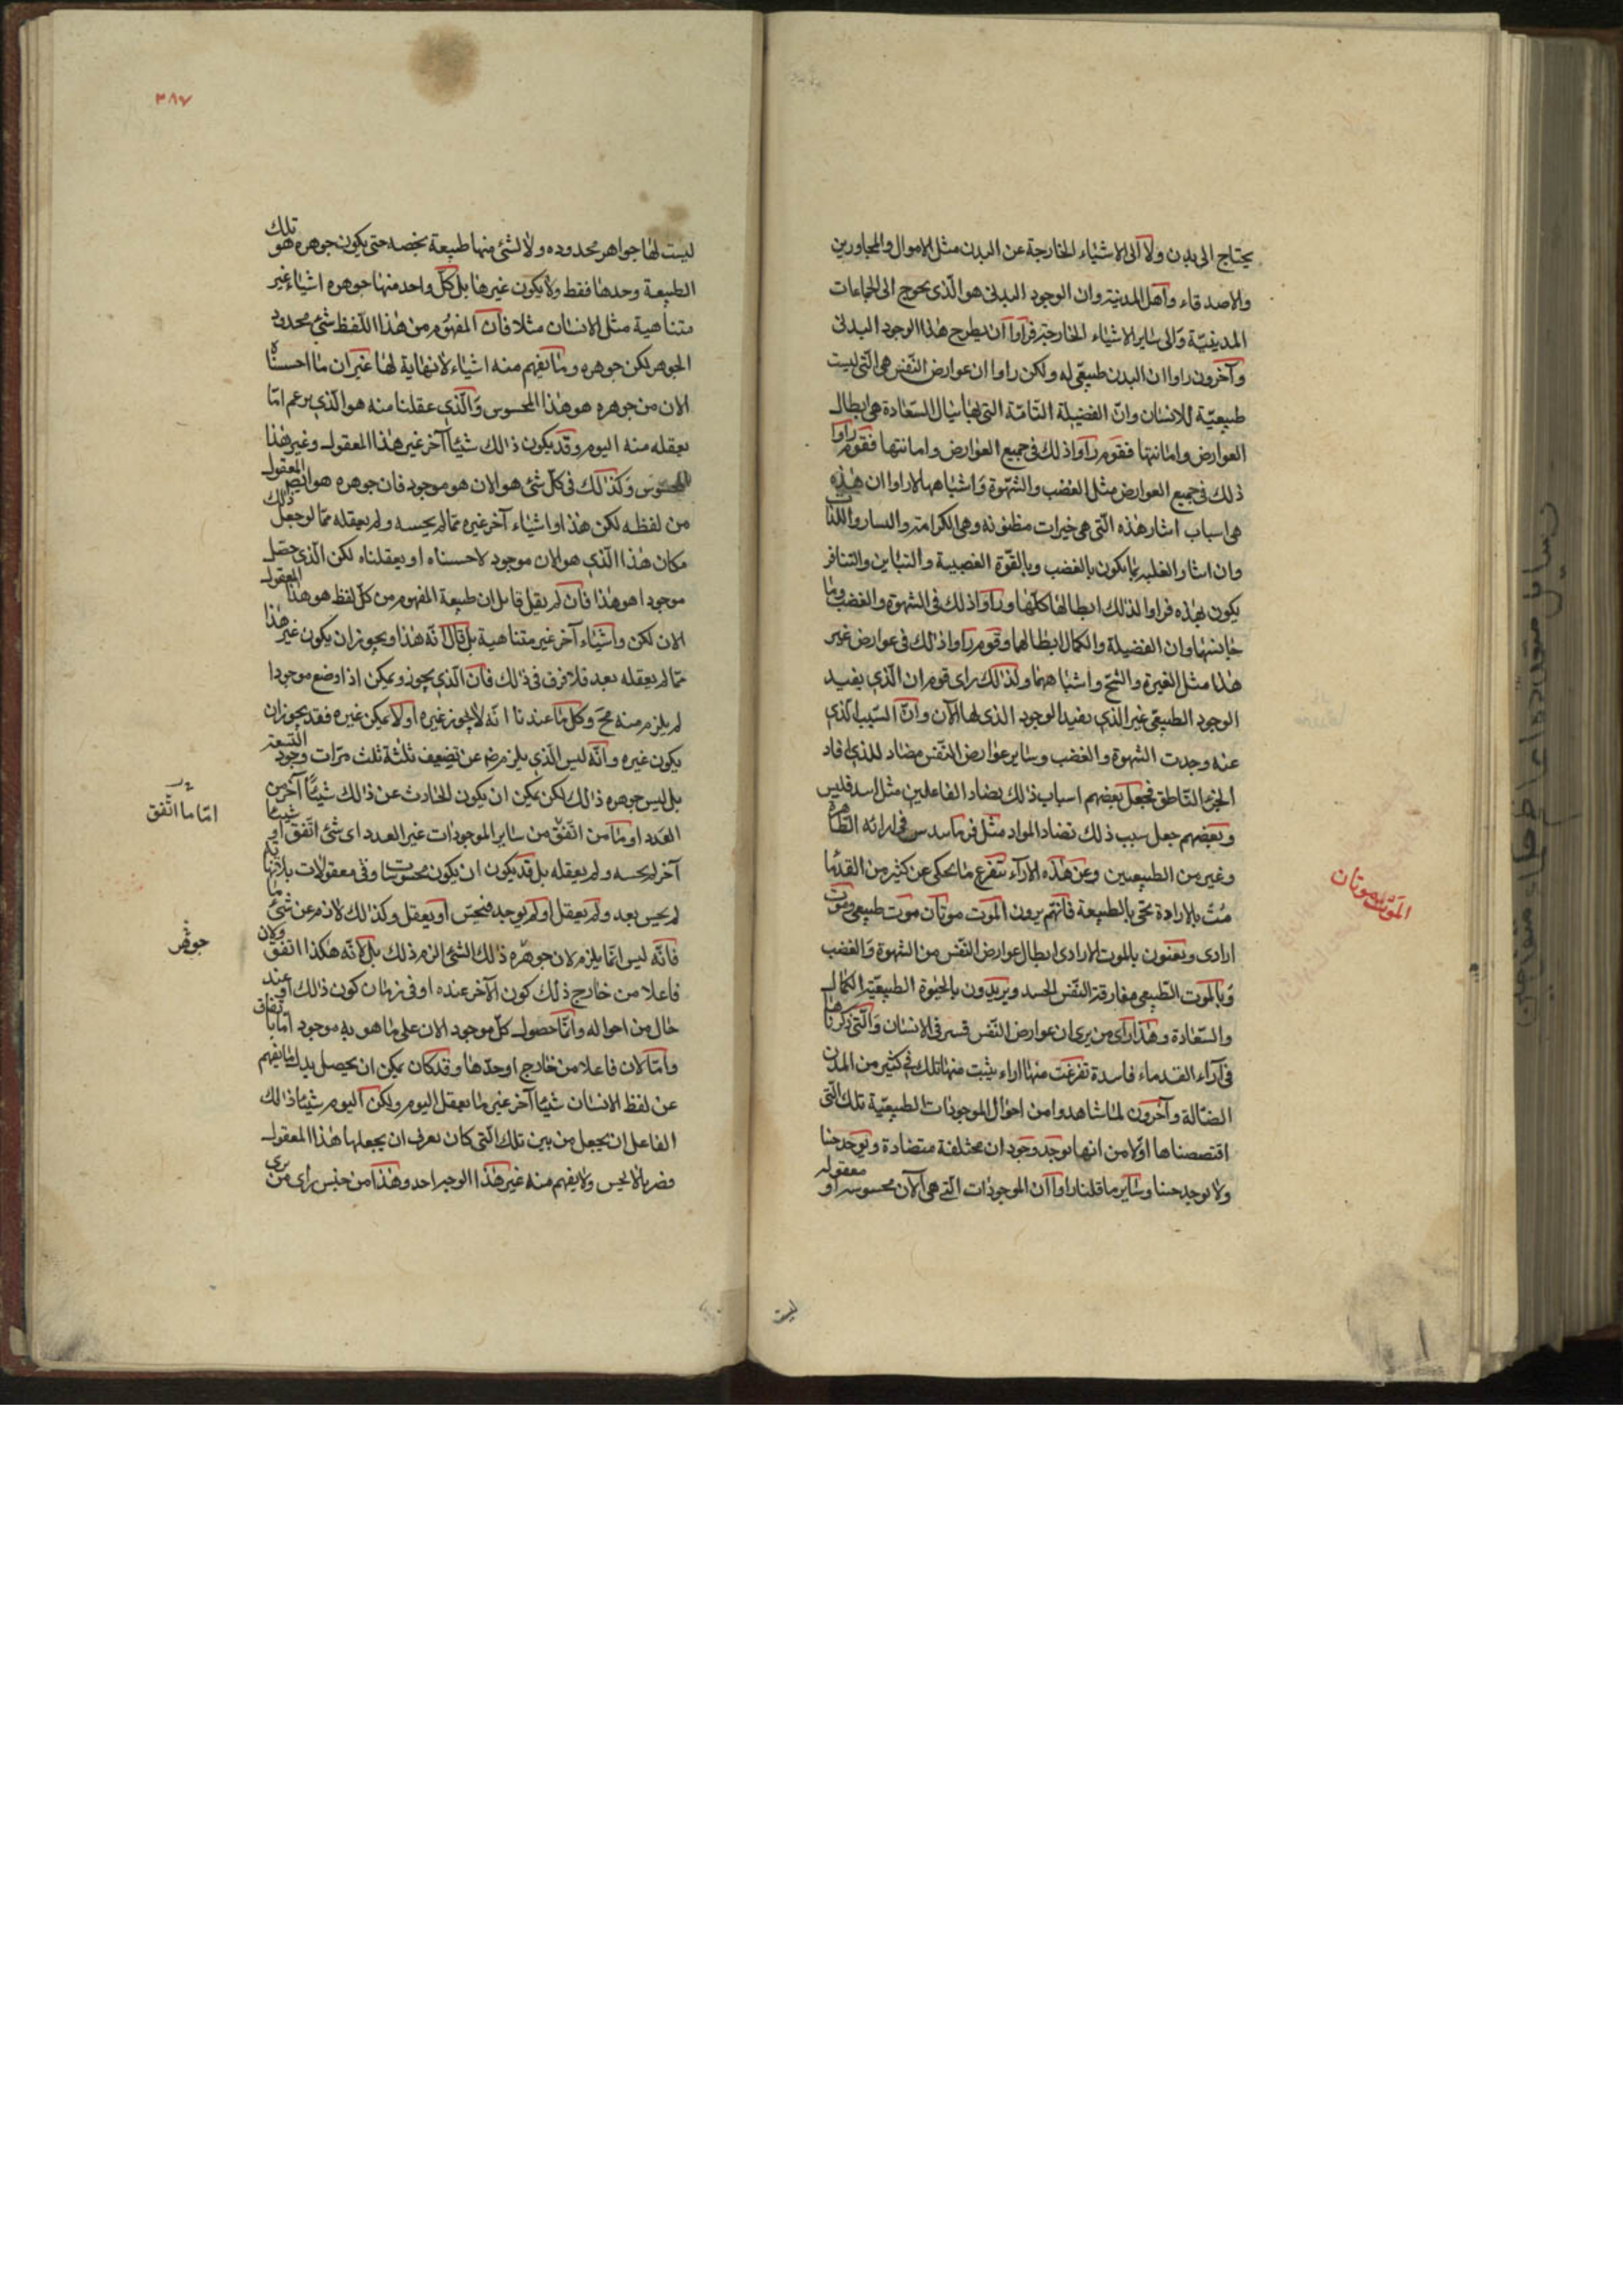 يحتاج الى بدن ولا الى الاشياء الخارجة عن البدن مثل الاموال والمجاورين
والاصدقاء واهل المدينة وان الوجود البدنى هو الّذى يحوج الى الجماعات
المدينيّة والى ساير الاشياء الخارجة فراوا ان يطرح هذا الوجود البدنى
وآخرون راوا ان البدن طبيعّى له ولكن راوا ان عوارض النّفس هى الّتى ليست
طبيعيّة للانسان وانّ الفضيلة التّامّة التى بها ينال السّعادة هى ابطال
العوارض واماتتها فقوم راوا ذلك فى جميع العوارض واماتتها فقوم راوا
ذلك فى جميع العوارض مثل الغضب والشّهوة واشباهها لاراوا ان هذه
هى اسباب ايثار هذه الّتى هى خيرات مظنونه وهى الكرامة واليسار واللذات
وان ايثار الغلبه انما يكون بالغضب وبالقوّة الغضبية والتباين والتنافر
يكون بهذه فراوا لذلك ابطالها كلّها وراوا ذلك فى الشهوة والغضب وما
جانسها وان الفضيلة والكمال ابطالهما وقوم راوا ذلك فى عوارض غير
هذا مثل الغيرة والشّح واشباههما ولذلك راى قوم ان الّذى يفيد
الوجود الطبيعّى غير الذى يفيد الوجود الذى لها الآن وانّ السّبب الذى
عنه وجدت الشهوة والغضب وساير عوارض النّفس مضاد للذى افاد
الجزء النّاطق فجعل بعضهم اسباب ذلك تضاد الفاعلين مثل اسدقليس
وبعضهم جعل سبب ذلك تضاد المواد مثل فرماسدس فى ارائه الظّاهرة
وغير من الطبيعيين وعن هذه الآراء تتفرع ما يحكى عن كثير من القدما
مُت بالارادة تحى بالطبيعة فانّهم يرون الموت موتان موت طبيعى وموت
ارادى ويعنون بالموت الارادى ابطال عوارض النّفس من الشهوة والغضب
وبالموت الطّبيعى مفارقة النّفس الجسد ويريدون بالحيوة الطبيعيّة الكمال
والسّعادة وهذا راى من يرى ان عوارض النّفس قسر فى الانسان والّتى ذكرناها
فى آراء القدماء فاسدة تفرغت منها اراء بثبت منها تلك فى كثير من المدن
الضّالة وآخرون لما شاهدوا من احوال الموجودات الطبيعيّة تلك الّتى
اقتصصناها اوّلا من انها توجد وجود ان مختلفة متضادة وتوجد حينا
ولا توجد حينا وساير ما قلنا راوا ان الموجودات الّتى هى الآن محسوسة او معقوله
ليست
الموت موتان
٣٨٧
ليست لها جواهر محدوده ولا لشئ منها طبيعة تخصه حتى يكون جوهره هو تلك
الطبيعة وحدها فقط ولا يكون غيرها بل كلّ واحد منها جوهره اشياء غير
متناهية مثل الانسان مثلا فان المفهوم من هذا اللّفظ شئ محدود
الجوهر لكن جوهره وما يفهم منه اشياء لا نهاية لها غير ان ما احسسناه
الان من جوهره هو هذا المحسوس والّذى عقلنا منه هو الّذى يزعم انّا
نعقله منه اليوم وقد يكون ذلك شيئا آخر غير هذا المعقول وغير هذا
المحسوس وكذلك فى كلّ شئ هو الان هو موجود فان جوهره هو ايض المعقول
من لفظه لكن هذا او اشياء آخر غيره ممّا لم يحسه ولم يعقله ممّا لو جعل ذلك
مكان هذا الّذى هو الان موجود لاحسسناه او يعقلناه لكن الّذى حصّل
موجودا هو هذا فان لم يقل قايل ان طبيعة المفهوم من كلّ لفظ هو هذا المعقول
الان لكن واشياء آخر غير متناهية بل قال انّه هذا ويجوز ان يكون غير هذا
ممّا لم يعقله بعد فلا فرق فى ذلك فان الّذى يجوز ويمكن اذا وضع موجودا
لم يلزم منه مح وكل ما عندنا انّه لا يجوز غيره او لا يمكن غيره فقد يجوز ان
يكون غيره وانّه ليس الّذى يلزم عن تضعيف ثلثة ثلث مرّات وجود التسعة
بل ليس جوهره ذلك لكن يمكن ان يكون الحادث عن ذلك شيئا آخر من
العدد او ما من اتّفق من ساير الموجودات غير العدد اى شئ اتّفق او شيئا
آخر لم يحسه ولم يعقله بل قد يكون ان يكون محسوسات وفى معقولات بلا نهاية
لم يحس بعد ولم يعقل او لم يوجد فيحسّ او يعقل وكذلك لازم عن شئ ما
فانّه ليس انّما يلزم لان جوهره ذلك الشئ الزم ذلك بل لانّه هكذا اتفق ولان
فاعلا من خارج ذلك كون الآخر عنده او فى زمان كون ذلك او عند
حال من احواله وانّما حصول كلّ موجود الان على ما هو به موجود امّا باتفاق
وامّا لان فاعلا من خارج اوجدها وقد كان يمكن ان يحصل بدل ما يفهم
عن لفظ الانسان شيئا آخر غير ما نعقل اليوم ولكن اليوم شيئا ذلك
الفاعل ان يجعل من بين تلك الّتى كان يعرف ان يجعلها هذا المعقول
فصرنا لا نحس ولا يفهم منه غير هذا الوجه احد وهذا من جنس راى من يرى
امّا ما اتّفق